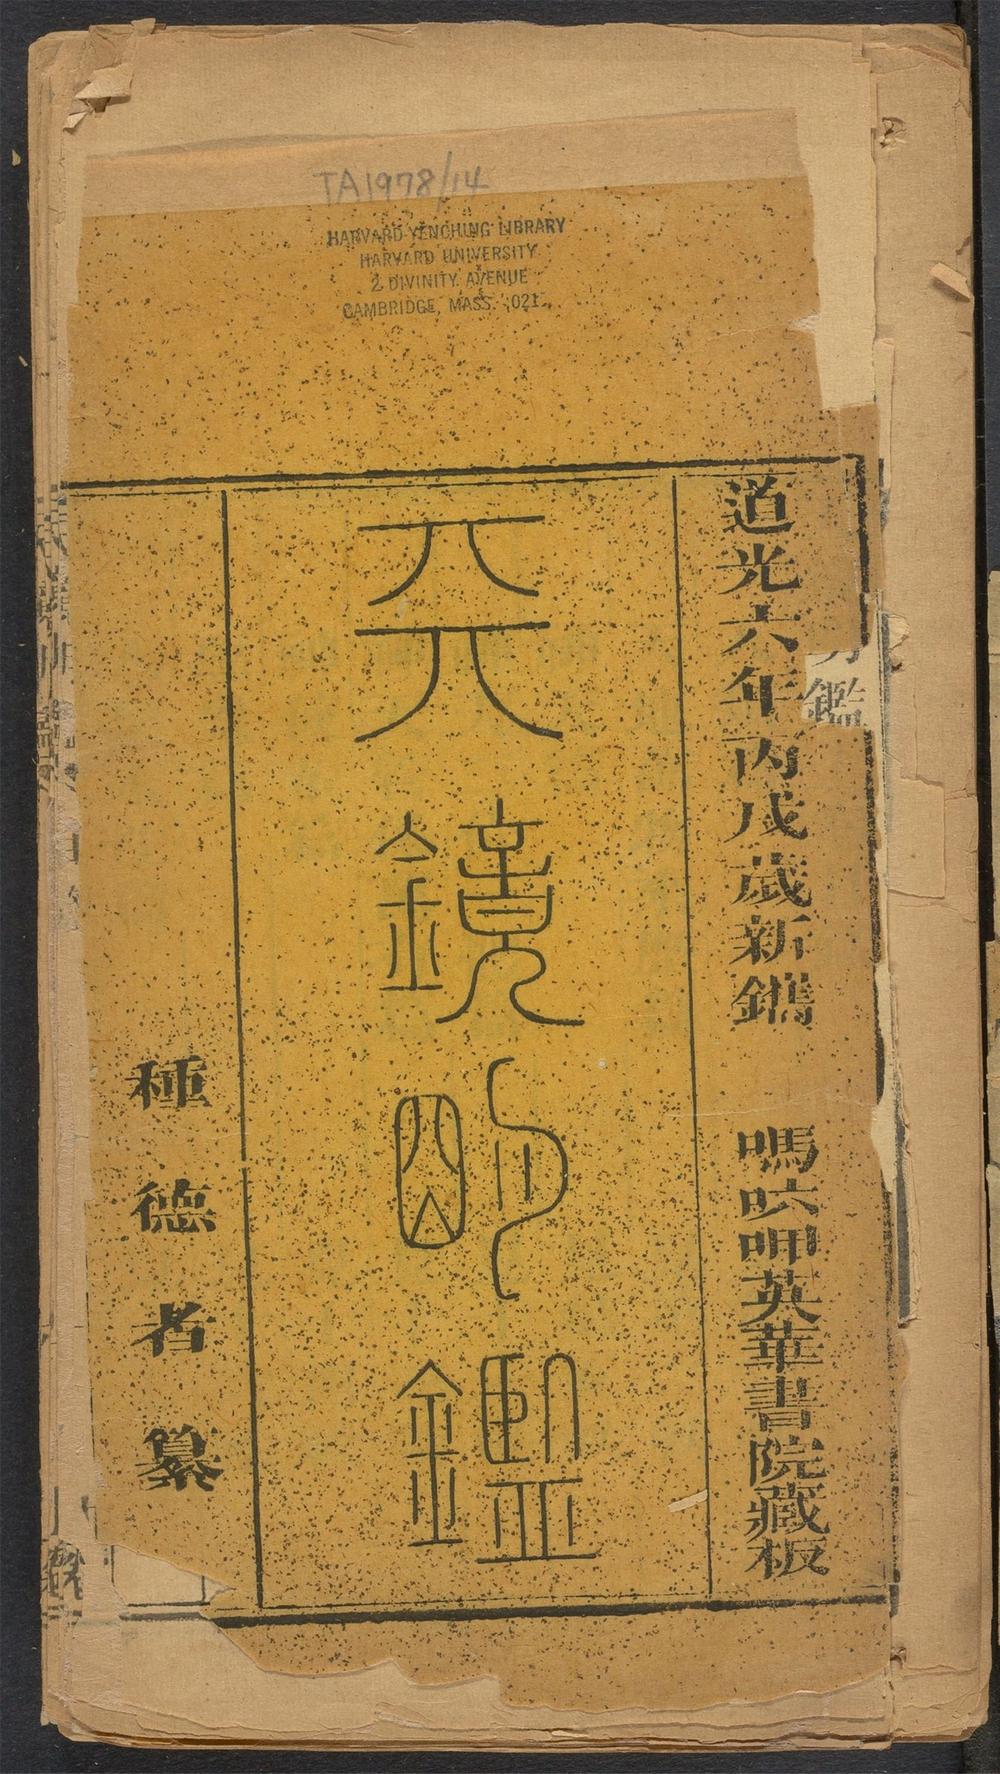 TA1978/14
HARVARD YENCHING LIBRARY
HARVARD UNIVERSITY
2 DIVINITY AVENUE
CAMBRIDGE, MASS. 021
鑑
道光六年丙戌歲新鐫
嗎呷英華書院藏板
天鏡明鑑
種德者纂